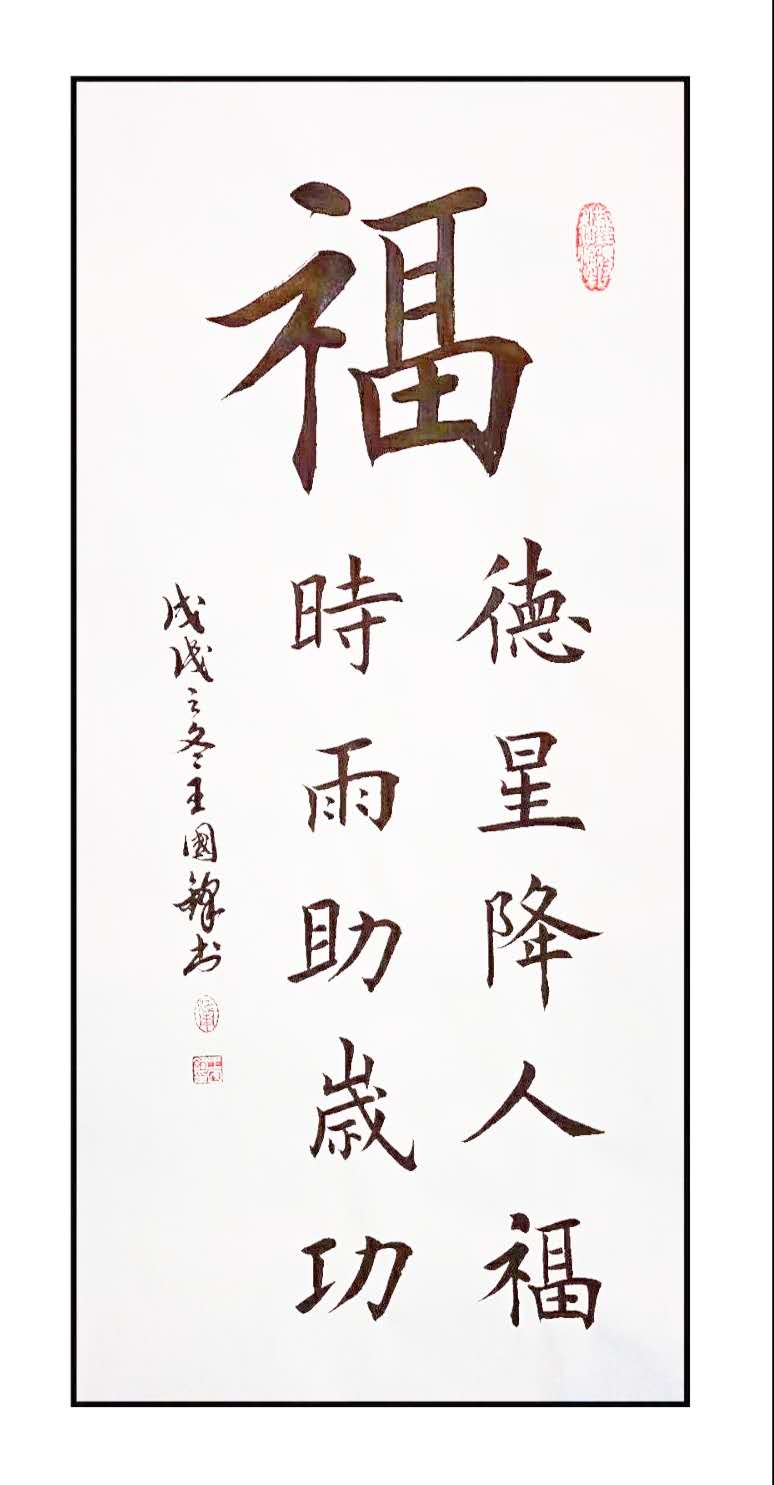 福
德星降人福
時雨助歲功
戊戌之冬王國鋒书